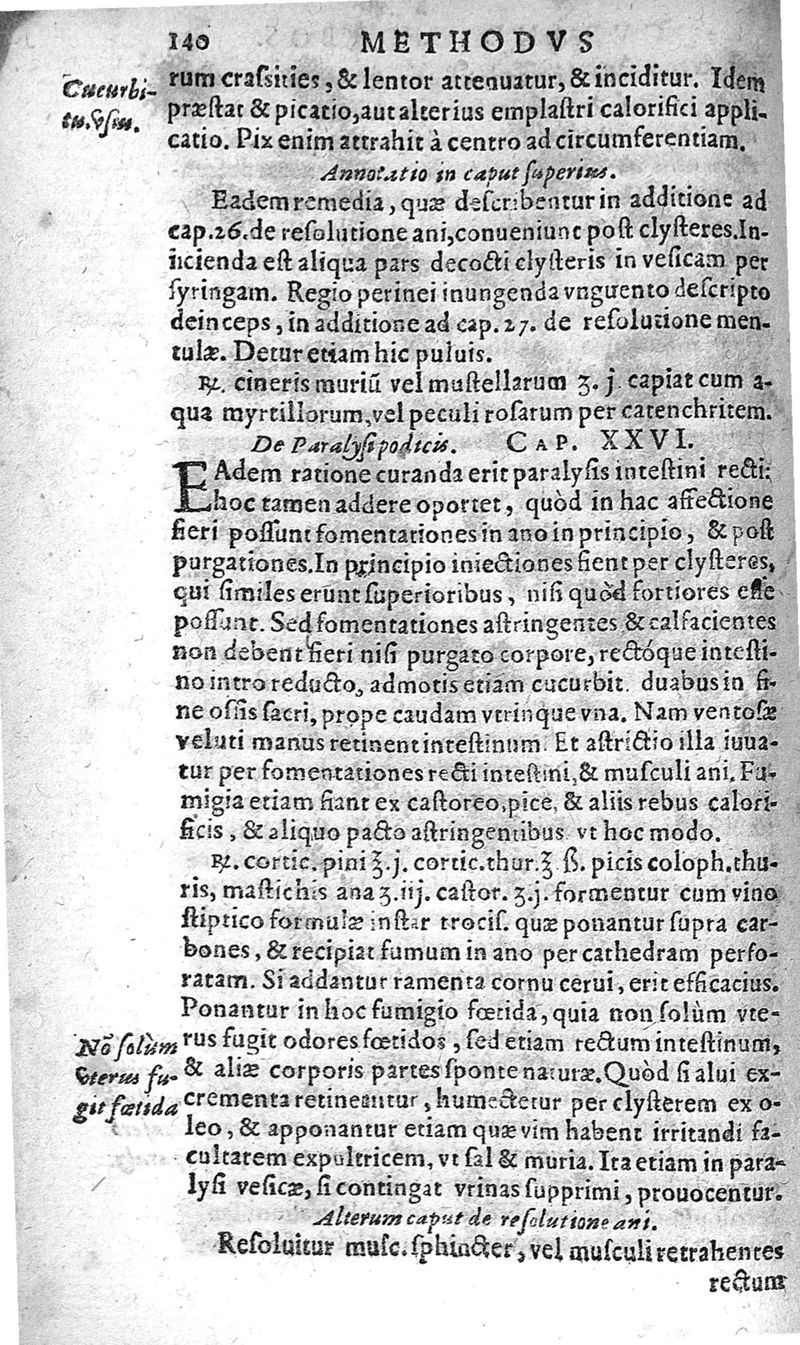 140 METHODVS
Cucurbi-
tu. vsus.
rum craſsities, & lentor attenuatur, & inciditur. Idem
præſtat & picatio, aut alterius emplaſtri calorifici appli-
catio. Pix enim attrahit à centro ad circumferentiam.
Annotatio in caput ſuperius.
Eadem remedia, quæ deſcribentur in additione ad
cap. 26. de reſolutione ani, conueniunt poſt clyſteres. In-
iicienda eſt aliqua pars decocti clyſteris in veſicam per
ſyringam. Regio perinei inungenda vnguento deſcripto
deinceps, in additione ad cap. 27. de reſolutione men-
tulæ. Detur etiam hic puluis.
℞. cineris muriũ vel muſtellarum ʒ. j. capiat cum a-
qua myrtillorum, vel peculi roſarum per catenchritem.
De Paralyſi podicis. CAP. XXVI.
EAdem ratione curanda erit paralyſis inteſtini recti:
hoc tamen addere oportet, quòd in hac affectione
fieri poſſunt fomentationes in ano in principio, & poſt
purgationes. In principio iniectiones fient per clyſteres,
qui ſimiles erunt ſuperioribus, niſi quòd fortiores eſſe
poſſunt. Sed fomentationes aſtringentes & calfacientes
non debent fieri niſi purgato corpore, rectóque inteſti-
no intro reducto, admotis etiam cucurbit. duabus in fi-
ne oſſis ſacri, prope caudam vtrinque vna. Nam ventoſæ
veluti manus retinent inteſtinum. Et aſtrictio illa iuua-
tur per fomentationes recti inteſtini, & muſculi ani. Fu-
migia etiam fiant ex caſtoreo, pice, & aliis rebus calori-
ficis, & aliquo pacto aſtringentibus vt hoc modo.
℞. cortic. pini ℥. j. cortic. thur. ℥ ß. picis coloph. thu-
ris, maſtichis ana ʒ. iij. caſtor. ʒ. j. formentur cum vino
ſtiptico formulæ inſtar trociſ. quæ ponantur ſupra car-
bones, & recipiat fumum in ano per cathedram perfo-
ratam. Si addantur ramenta cornu cerui, erit efficacius.
Ponantur in hoc fumigio fœtida, quia non ſolùm vte-
Nõ ſolùm
vterus fu-
git fœtida
rus fugit odores fœtidos, ſed etiam rectum inteſtinum,
& aliæ corporis partes ſponte naturæ. Quòd ſi alui ex-
crementa retineantur, humectetur per clyſterem ex o-
leo, & apponantur etiam quæ vim habent irritandi fa-
cultatem expultricem, vt ſal & muria. Ita etiam in para-
lyſi veſicæ, ſi contingat vrinas ſupprimi, prouocentur.
Alterum caput de reſolutione ani.
Reſoluitur muſc. ſphincter, vel muſculi retrahentes
rectum